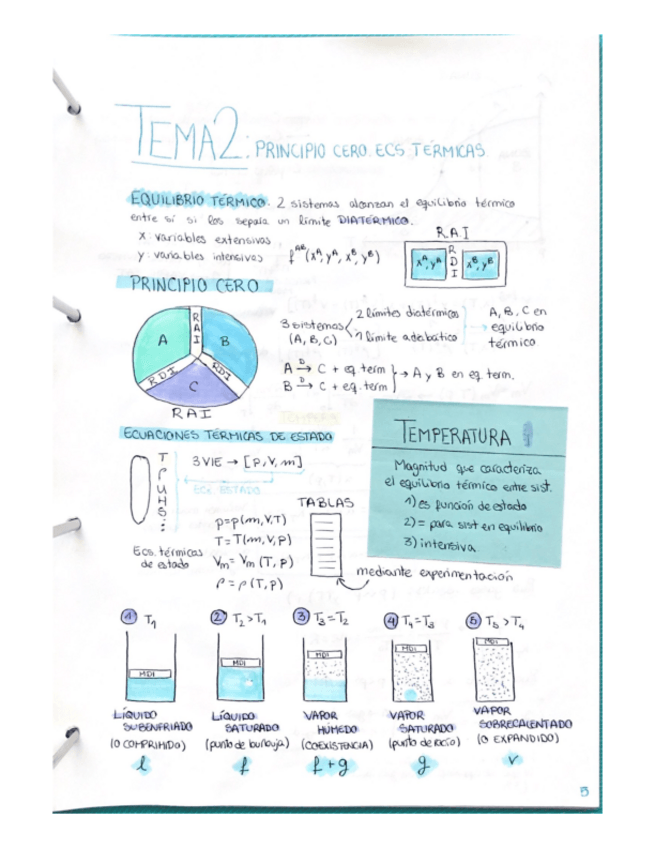 TEMA 2: PRINCIPIO CERO. ECS TÉRMICAS
EQUILIBRIO TÉRMICO. 2 sistemas alcanzan el equilibrio térmico
entre sí si los separa un límite DIATÉRMICO.
x: variables extensivas
y: variables intensivas
f^AB (x^A, y^A, x^B, y^B)
R.A.I
x^A, y^A
R D I
x^B, y^B
PRINCIPIO CERO
A
B
C
RAI
RDI
RDI
RAI
3 sistemas
(A, B, C)
2 límites diatérmicos
1 límite adiabático
A, B, C en
equilibrio
térmico
A →D C + eq. term
B →D C + eq. term
→ A y B en eq. term.
ECUACIONES TÉRMICAS DE ESTADO
T
P
U
H
S
⋮
3 VIE → [p, V, m]
ECS ESTADO
Ecs. térmicas
de estado
p=p(m,V,T)
T=T(m,V,p)
Vm=Vm (T, p)
ρ=ρ (T, p)
TABLAS
mediante experimentación
TEMPERATURA
Magnitud que caracteriza
el equilibrio térmico entre sist.
1) es función de estado
2) = para sist en equilibrio
3) intensiva
1 T1
2 T2>T1
3 T3=T2
4 T4=T3
5 T5>T4
MDI
MDI
MDI
MDI
MDI
LÍQUIDO
SUBENFRIADO
(O COMPRIMIDO)
l
LÍQUIDO
SATURADO
(punto de burbuja)
f
VAPOR
HÚMEDO
(COEXISTENCIA)
f+g
VAPOR
SATURADO
(punto de rocío)
g
VAPOR
SOBRECALENTADO
(O EXPANDIDO)
v
5